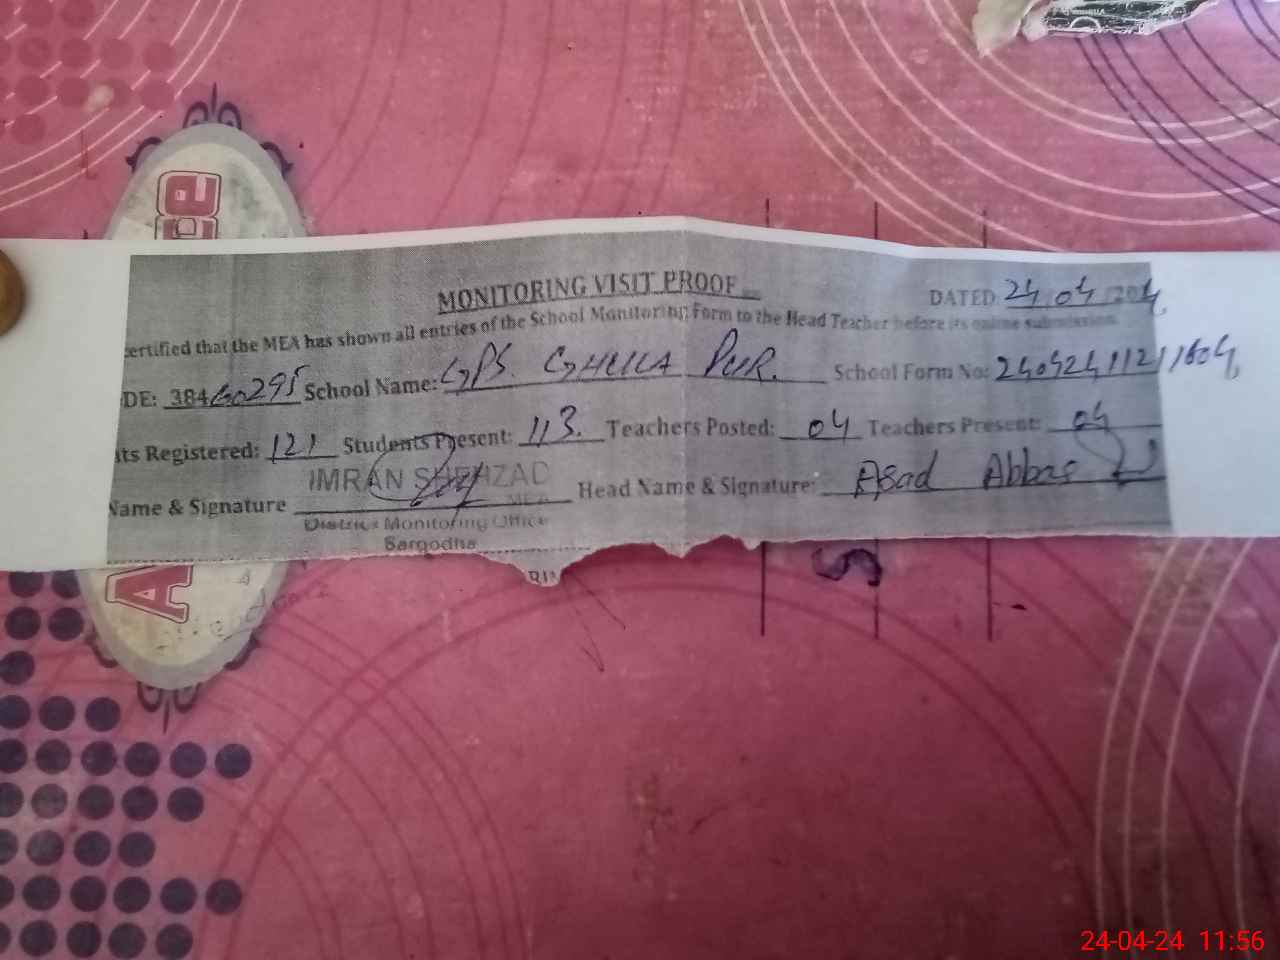 MONITORING VISIT PROOF
DATED 24/04/2024
ertified that the MEA has shown all entries of the School Monitoring Form to the Head Teacher before its online submission.
DE: 38460295 School Name: GPS. GHULLA PUR. School Form No:
ts Registered: 121 Students Present: 113. Teachers Posted: 04 Teachers Present: 04
IMRAN SHEHZAD
MEA
Name & Signature Head Name & Signature: Asad Abbas
District Monitoring Office
Sargodha
RIN
24-04-24 11:56